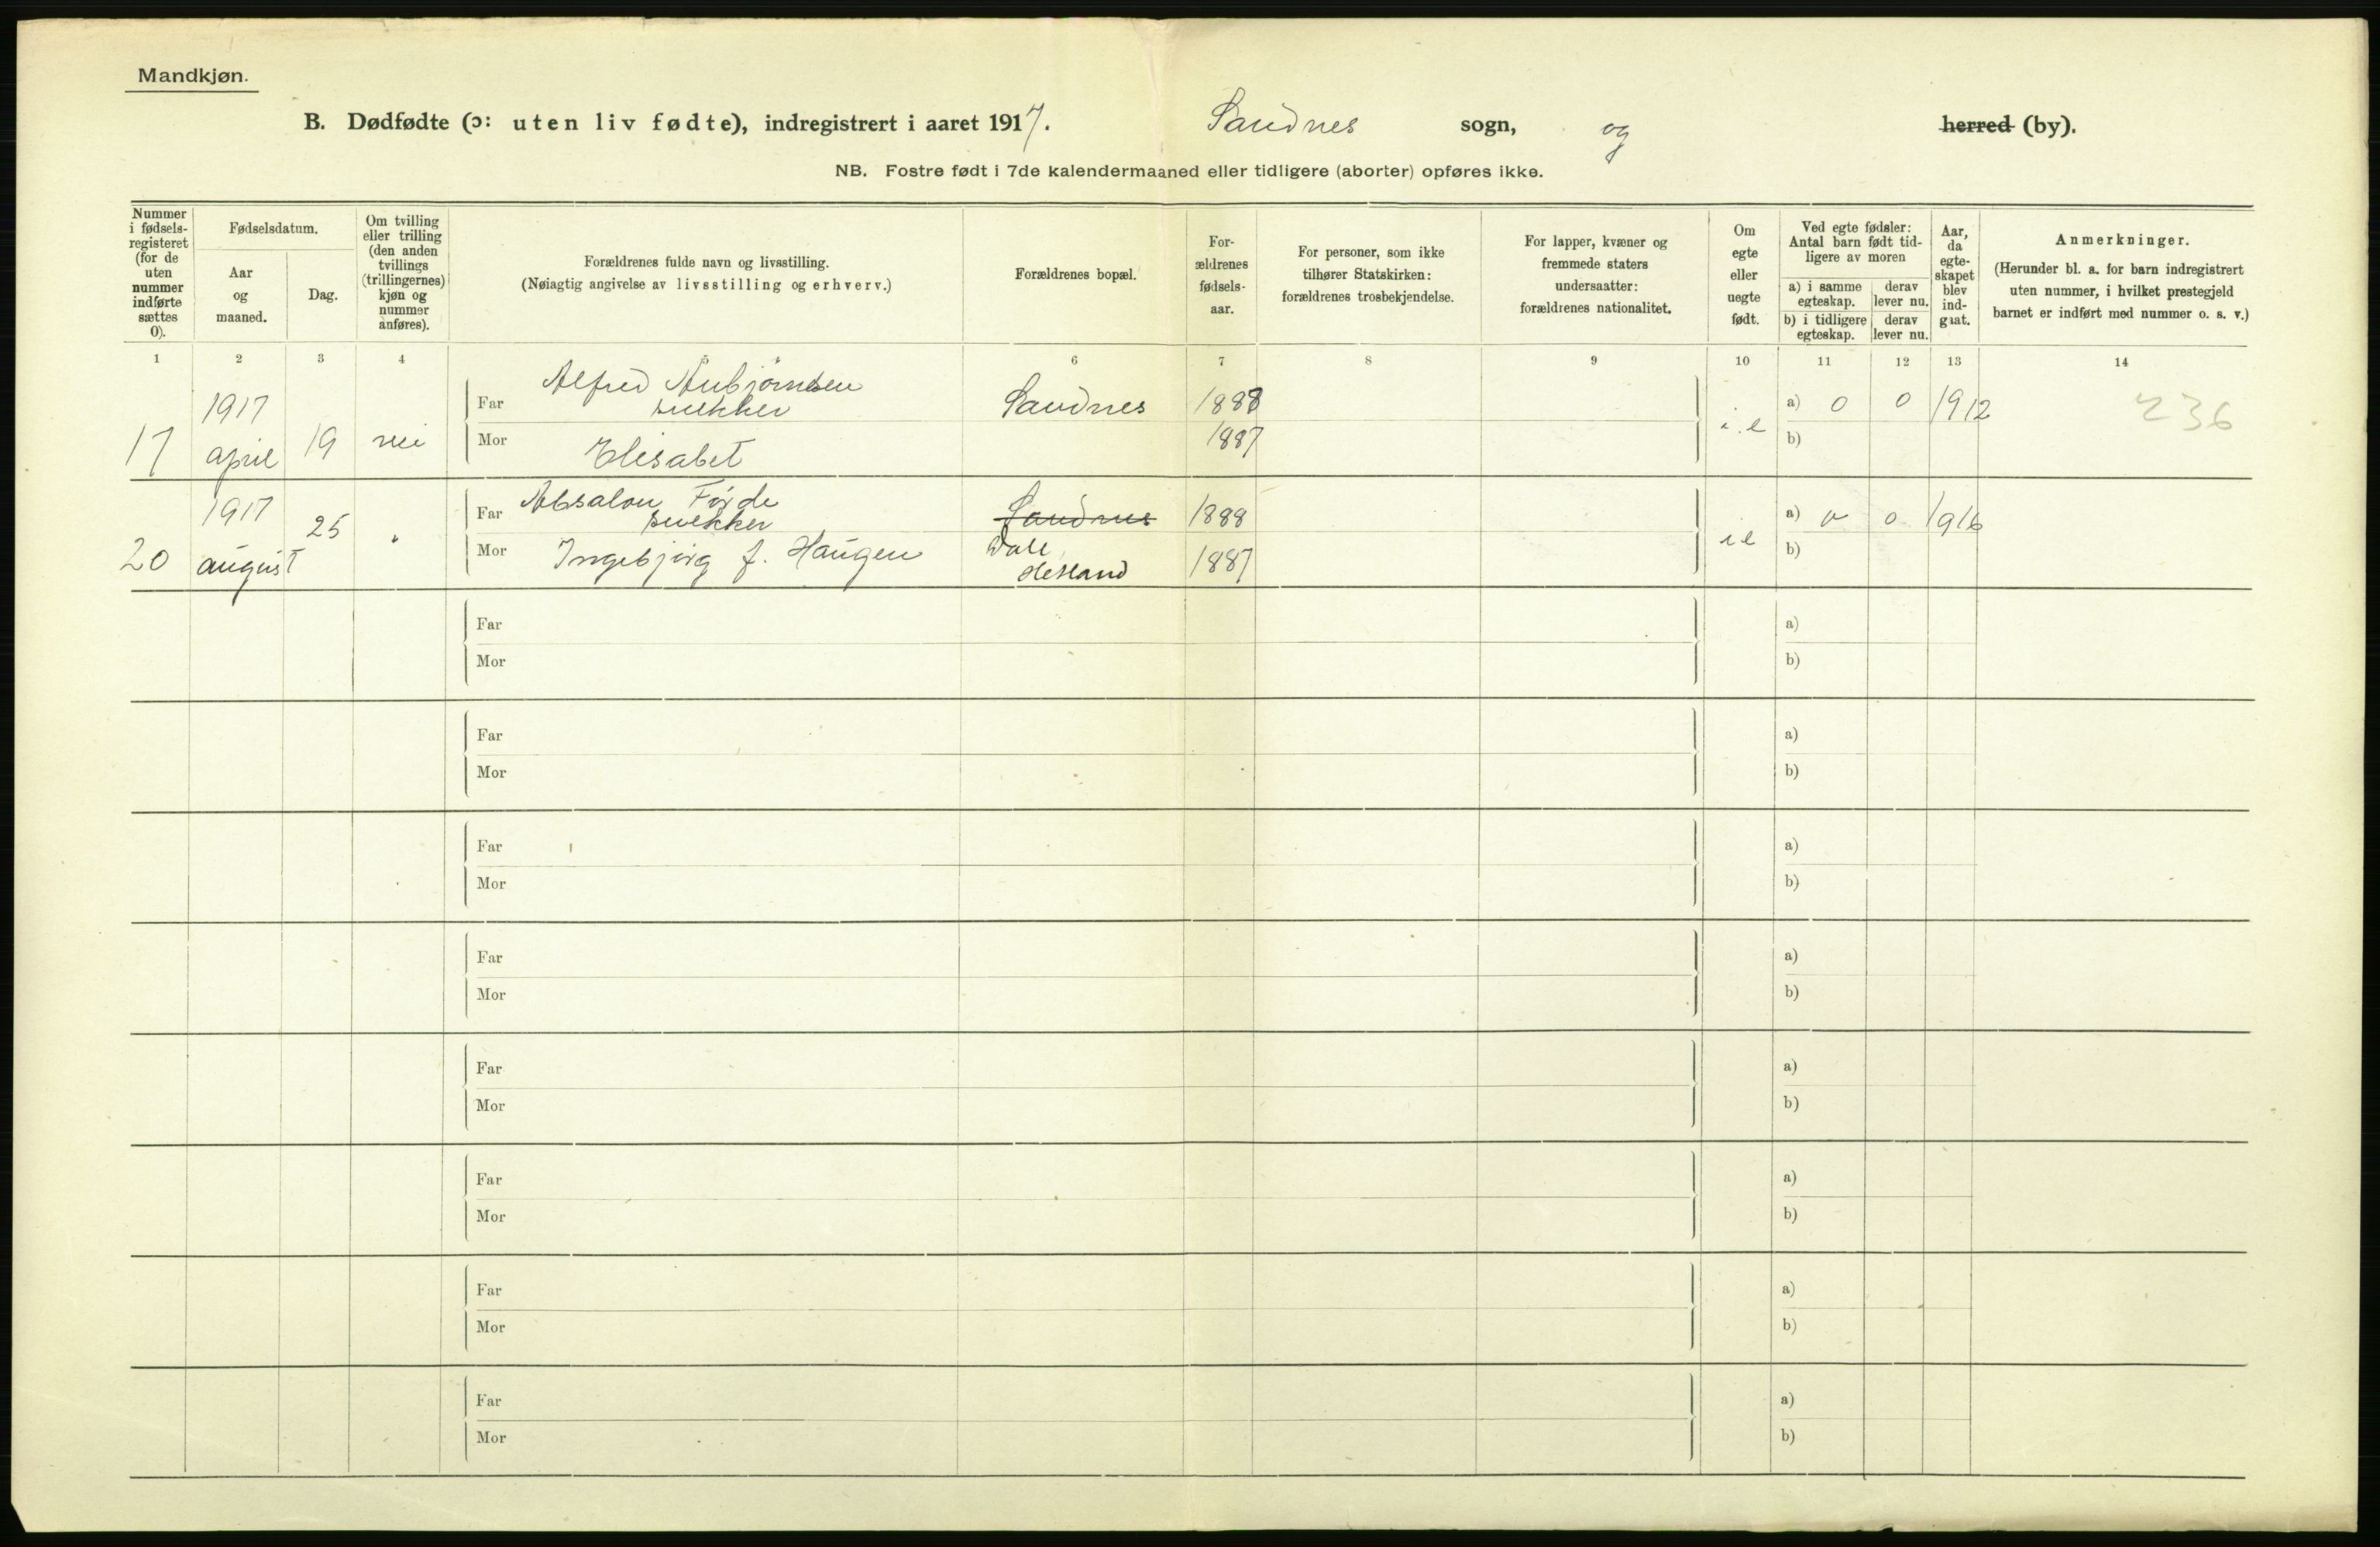 Mandkjøn.
B. Dødfødte (ɔ: uten liv fødte), indregistrert i aaret 1917. Sandnes sogn, og herred (by).
NB. Fostre født i 7de kalendermaaned eller tidligere (aborter) opføres ikke.
Nummer i fødsels-registeret (for de uten nummer indførte sættes 0).
Fødselsdatum.
Aar og maaned.
Dag.
Om tvilling eller trilling (den anden tvillings (trillingernes) kjøn og nummer anføres).
Forældrenes fulde navn og livsstilling.
(Nøiagtig angivelse av livsstilling og erhverv.)
Forældrenes bopæl.
For-ældrenes fødsels-aar.
For personer, som ikke tilhører Statskirken: forældrenes trosbekjendelse.
For lapper, kvæner og fremmede staters undersaatter: forældrenes nationalitet.
Om egte eller uegte født.
Ved egte fødsler: Antal barn født tid-ligere av moren
a) i samme egteskap. derav lever nu.
b) i tidligere egteskap. derav lever nu.
Aar, da egte-skapet blev ind-gaat.
Anmerkninger.
(Herunder bl. a. for barn indregistrert uten nummer, i hvilket prestegjeld barnet er indført med nummer o. s. v.)
1 2 3 4 5 6 7 8 9 10 11 12 13 14
17 1917 april 19 nei
Far Alfred Sandnes 1888
Mor Elisabet 1887
i.e a) 0 0 1912 236
b)
20 1917 august 25 "
Far Absalon Sandnes 1888
Mor Ingebjørg f. Haugen Dale Hetland 1887
i e a) 0 0 1916
b)
Far a)
Mor b)
Far a)
Mor b)
Far a)
Mor b)
Far a)
Mor b)
Far a)
Mor b)
Far a)
Mor b)
Far a)
Mor b)
Far a)
Mor b)